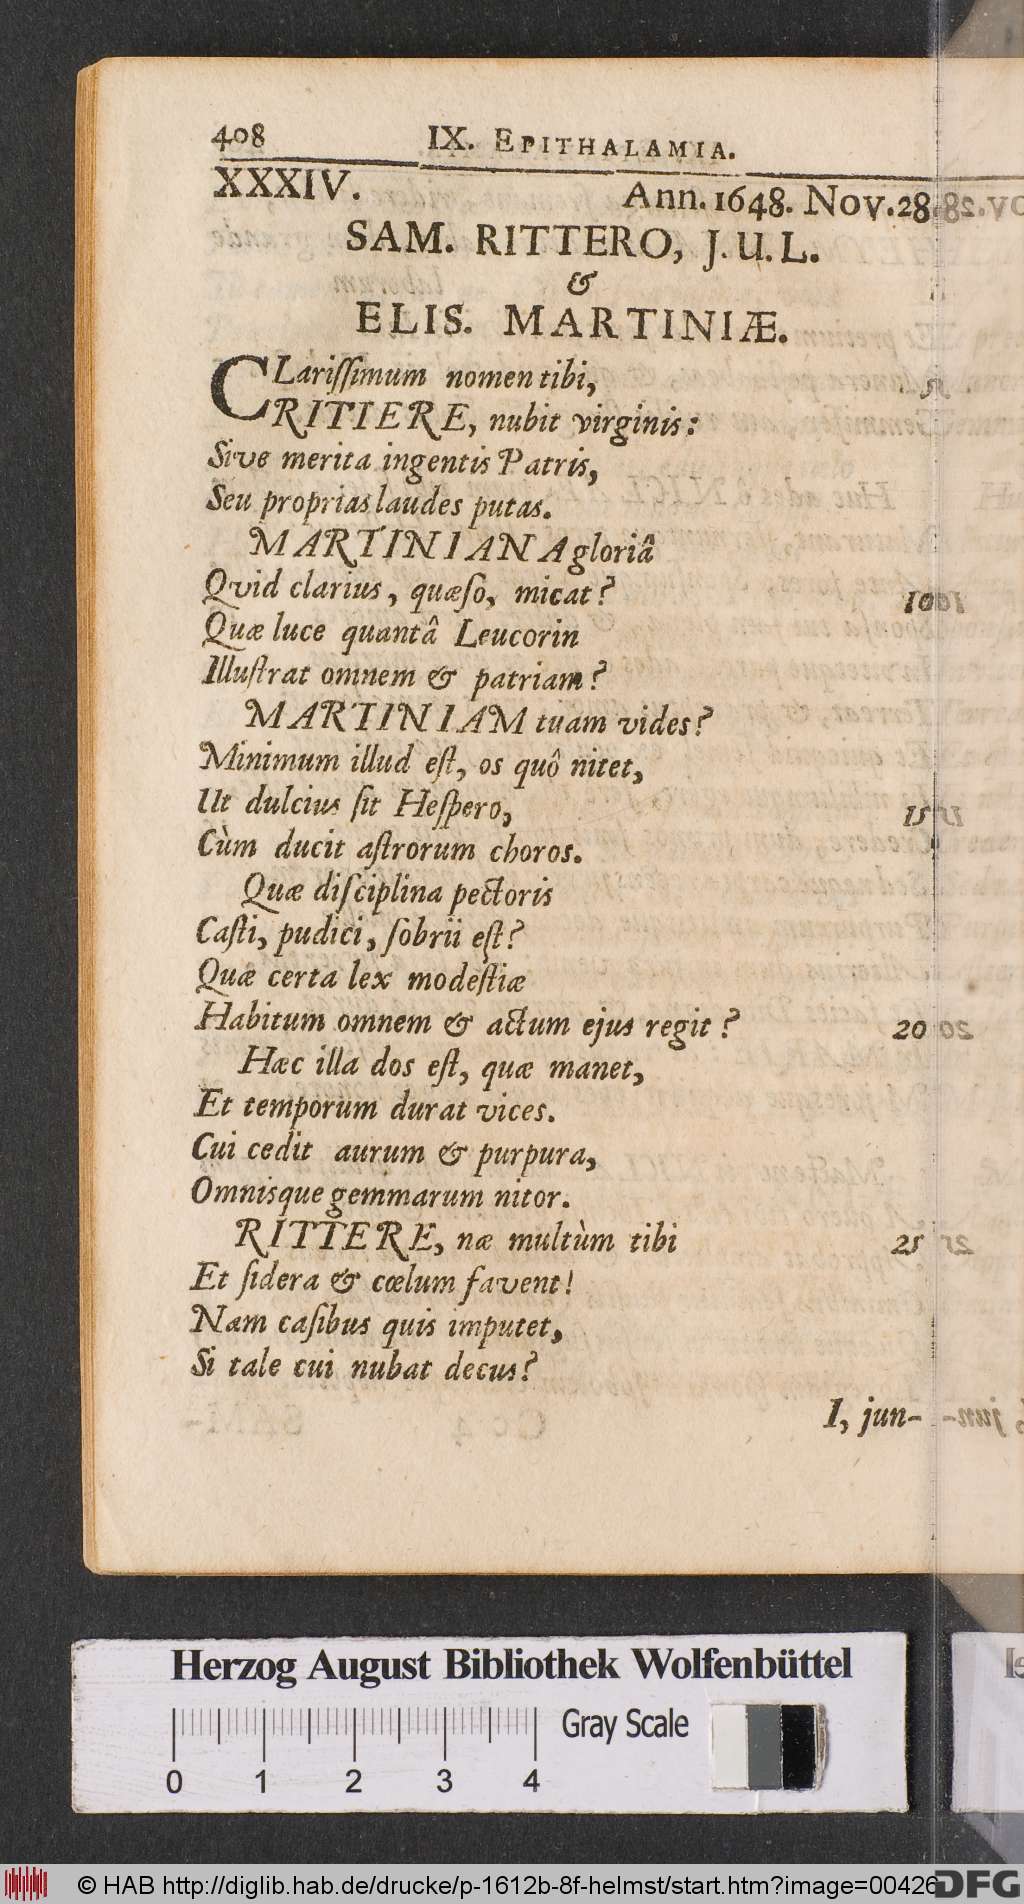 408 IX. EPITHALAMIA.
XXXIV. Ann. 1648. Nov. 28.
SAM. RITTERO, J.U.L.
&
ELIS. MARTINIÆ.
CLarisſimum nomen tibi,
RITIERE, nubit virginis: 5
Sive merita ingentis Patris,
Seu proprias laudes putas.
MARTINIANA gloriâ
Qvid clarius, quæſo, micat? 10
Quæ luce quantâ Leucorin
Illuſtrat omnem & patriam?
MARTINIAM tuam vides?
Minimum illud eſt, os quô nitet,
Ut dulcius ſit Heſpero, 15
Cùm ducit aſtrorum choros.
Quæ diſciplina pectoris
Caſti, pudici, ſobrii eſt?
Quæ certa lex modeſtiæ
Habitum omnem & actum ejus regit? 20
Hæc illa dos eſt, quæ manet,
Et temporum durat vices.
Cui cedit aurum & purpura,
Omnisque gemmarum nitor.
RITTERE, næ multùm tibi 25
Et ſidera & cœlum favent!
Nam caſibus quis imputet,
Si tale cui nubat decus?
I, jun-
Herzog August Bibliothek Wolfenbüttel
Gray Scale
0 1 2 3 4
© HAB http://diglib.hab.de/drucke/p-1612b-8f-helmst/start.htm?image=00426
DFG